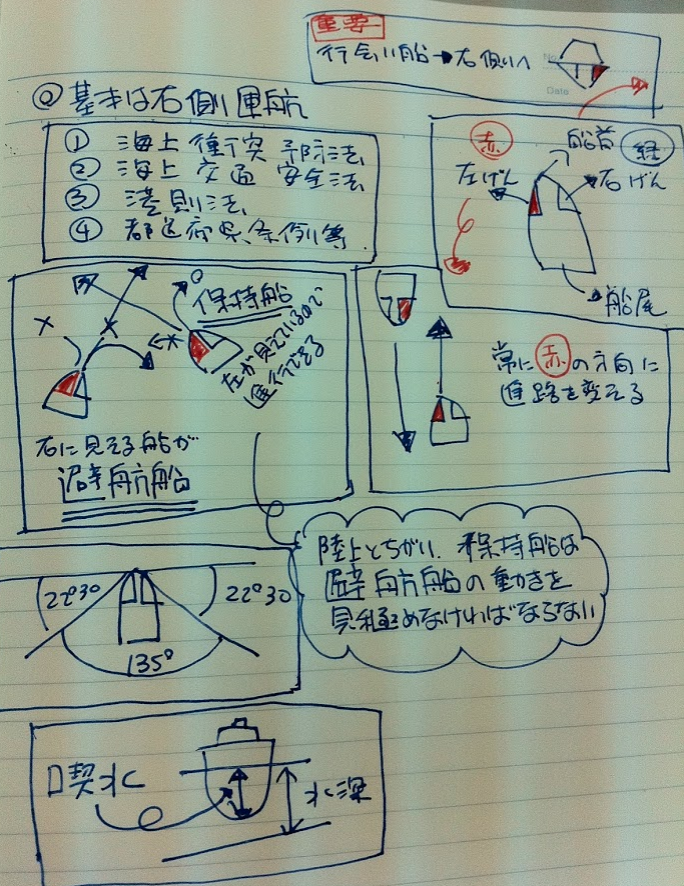 重要
行会い船→右側へ
No.
Date
◎基本は右側運航
① 海上衝突予防法
② 海上交通安全法
③ 港則法
④ 都道府県条例等
赤
船首
経
左げん
右げん
船尾
保持船
左が見えているので
進行できる
右に見える船が
避航船
常に赤の方向に
進路を変える
陸上とちがい、保持船は
避航船の動きを
見極めなければならない
22°30
22°30
135°
喫水
水深